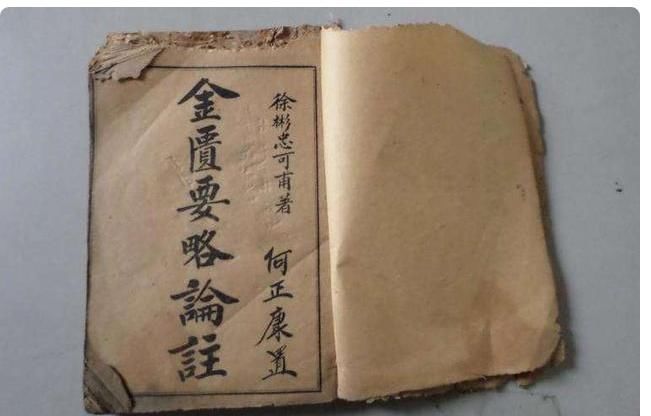 徐彬忠可甫著　何正康置
金匱要略論註